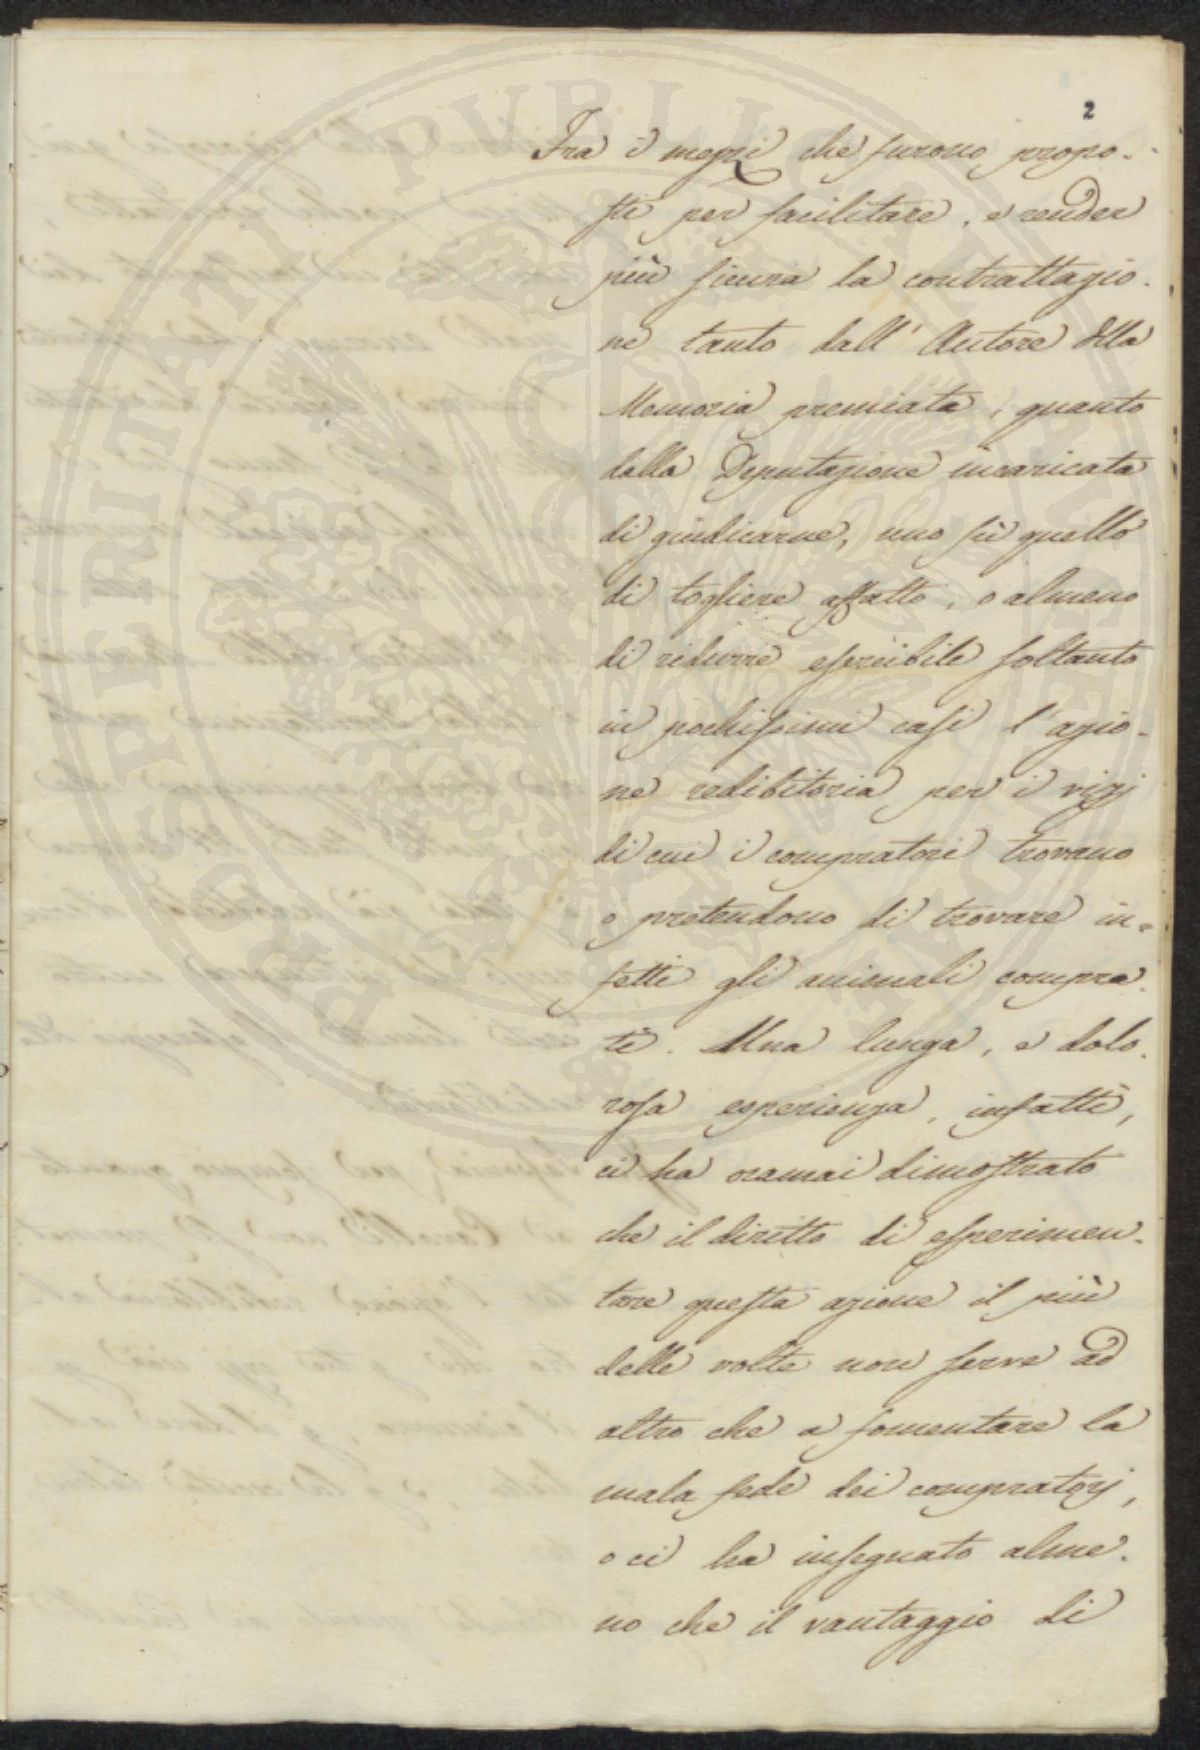 2
Fra i mezzi che furono propo-
sti per facilitare, e render
più sicura la contrattazio-
ne tanto dall' Autore della
Memoria premiata, quanto
dalla Deputazione incaricata
di giudicarne, uno fù quello
di togliere affatto, o almeno
di ridurre esperibile soltanto
in pochissimi casi l'azio-
ne redibitoria per i vizj
di cui i compratori trovano
o pretendono di trovare in-
fetti gli animali compra-
ti. Una lunga, e dolo-
rosa esperienza, infatti,
ci ha oramai dimostrato
che il diritto di esperimen-
tare questa azione il più
delle volte non serve ad
altro che a fomentare la
mala fede dei compratorj,
o ci ha insegnato alme-
no che il vantaggio di
PROSPERITATI PUBLICAE AUGENDAE